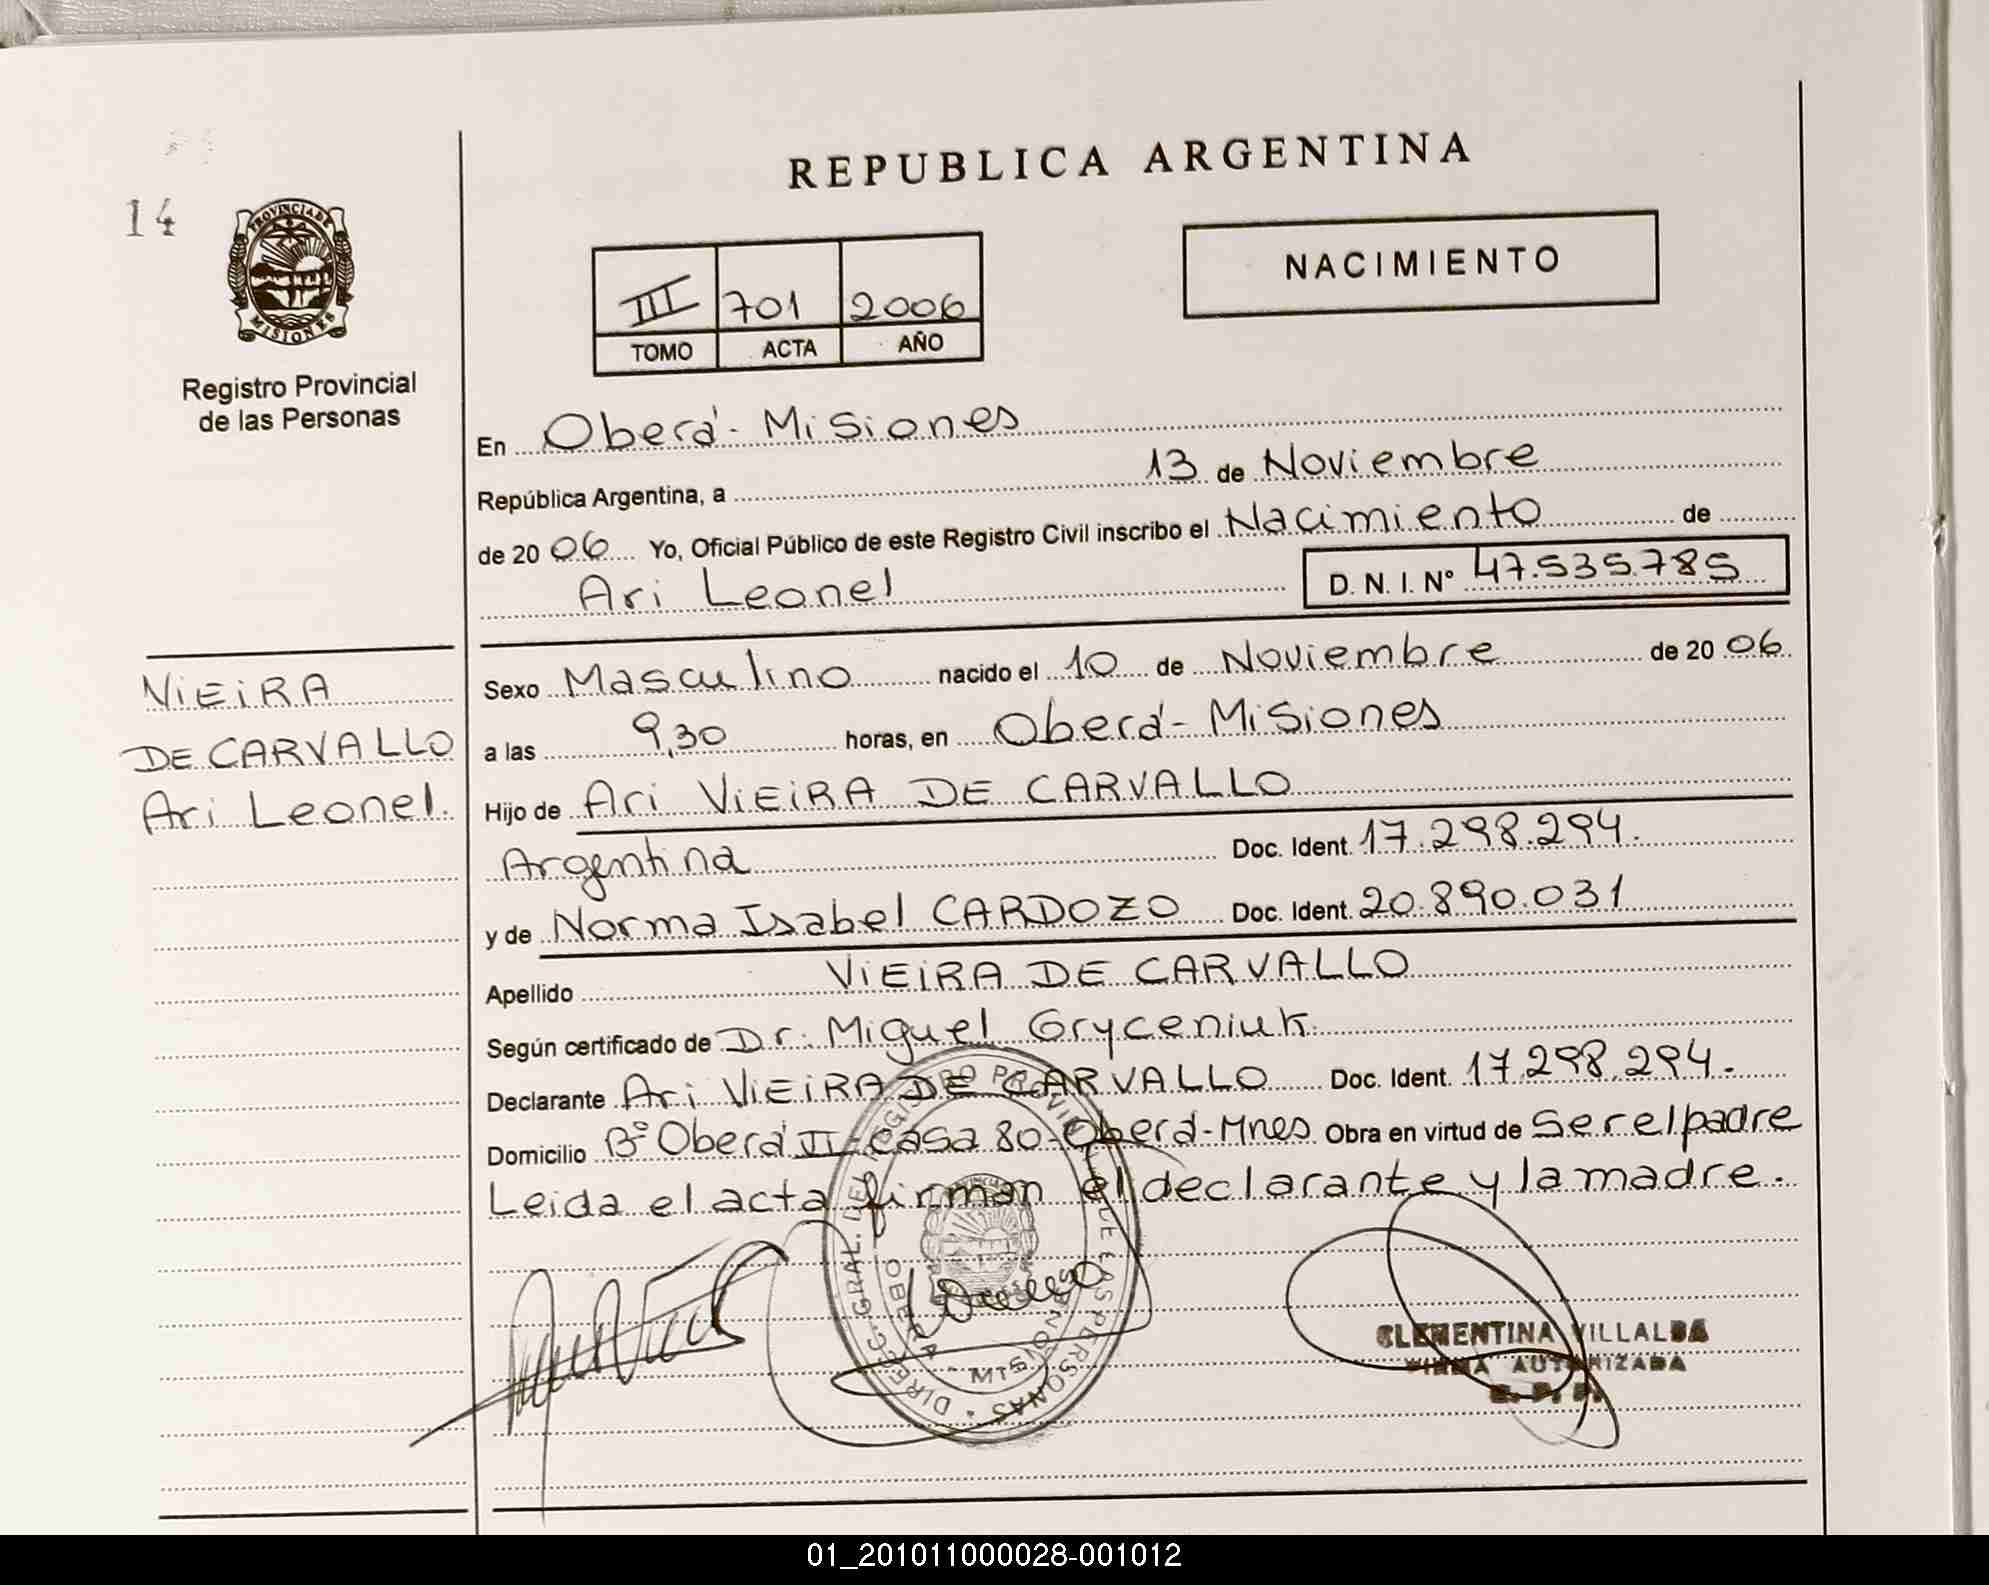 REPUBLICA ARGENTINA
14
PROVINCIA DE
MISIONES
Registro Provincial
de las Personas
III 701 2006
TOMO ACTA AÑO
NACIMIENTO
En Oberá - Misiones
República Argentina, a 13 de Noviembre
de 20 06 Yo, Oficial Público de este Registro Civil inscribo el Nacimiento de
Ari Leonel D. N. I. Nº 47.535.785
VIEIRA
DE CARVALLO
Ari Leonel.
Sexo Masculino nacido el 10 de Noviembre de 20 06
a las 9,30 horas, en Oberá - Misiones
Hijo de Ari VIEIRA DE CARVALLO
Argentina Doc. Ident. 17.298.294.
y de Norma Isabel CARDOZO Doc. Ident. 20.890.031
Apellido VIEIRA DE CARVALLO
Según certificado de Dr. Miguel Gryceniuk.
Declarante Ari VIEIRA DE CARVALLO Doc. Ident. 17.298.294.
Domicilio Bº Oberá II - Casa 80 - Oberá - Mnes Obra en virtud de Ser el padre
Leida el acta firman el declarante y la madre.
DIREC. GRAL. DEL REGISTRO PROVINCIAL DE LAS PERSONAS
OBERA
MISIONES
CLEMENTINA VILLALBA
FIRMA AUTORIZADA
01_201011000028-001012